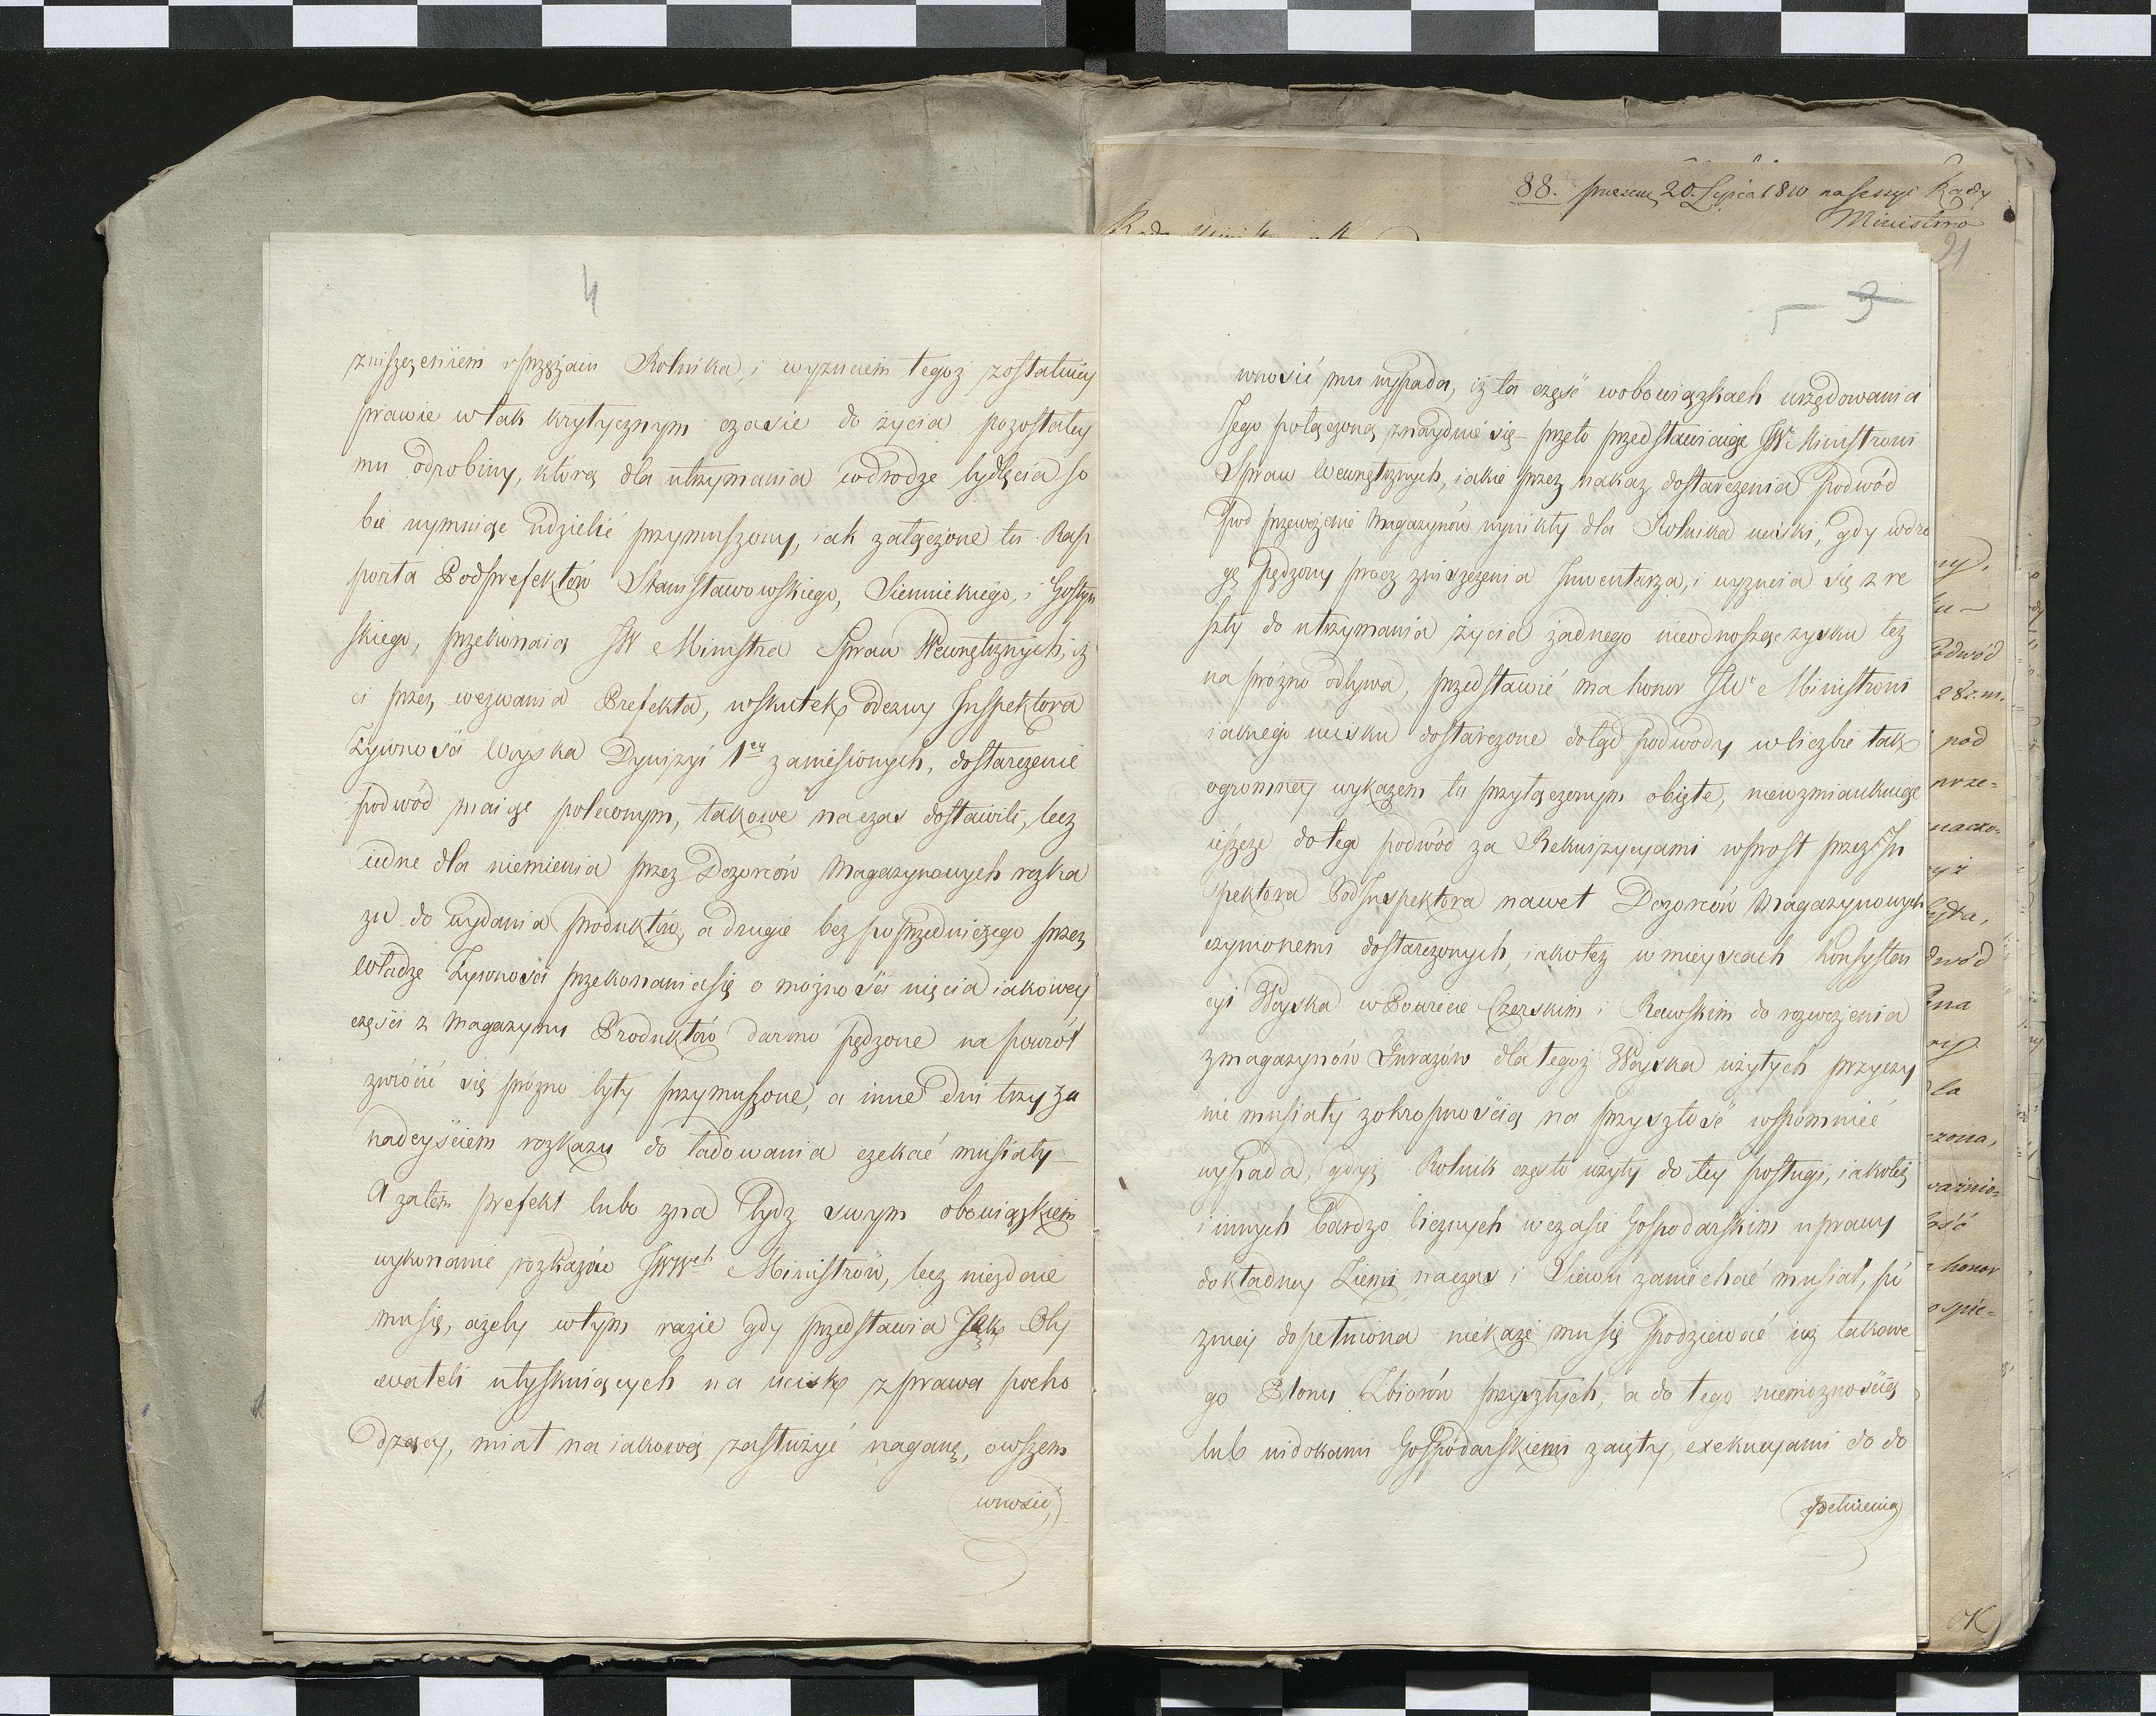 88. 20. Lipca 1810 na Sessyi Rady
Ministrów
91
4
zniszczeniem sprzężaiu Rolnika, i wyzuciem tegoż zostatniey
prawie w tak krytycznym czasie do życia pozostałey
mu odrobiny, którą dla utrzymania wdrodze bydlęcia so
bie uymuiąc udzielić przymuszony, iak załączone tu Rap
porta Podprefektów Stanisławowskiego, Siennickiego, i Gostyn
skiego, przekonaią JW Ministra Spraw Wewnętrznych, iż
ci przez wezwania Prefekta, wskutek odezwy Inspektora
Żywności Woyska Dywizyi 1ey zaniesionych, dostarczenie
podwód maiąc poleconym, takowe naczas dostawili, lecz
iedne dla niemienia przez Dozorców Magazynowych rozka
zu do wydania produktów, a drugie bez poprzedniczego przez
Władzę Żywności przekonania się o możności wzięcia iakowey
części z Magazynu Produktów darmo pędzone na powrót
zwrócić się próżno były przymuszone, a inne dni trzy za
nadeyściem rozkazu do ładowania czekać musiały
A zatem prefekt lubo zna bydź swym obowiązkiem
wykonanie rozkazów JWWch Ministrów, lecz niezdaie
mu się, ażeby wtym razie gdy przedstawia Jęk Oby
wateli utyskuiących na ucisk z prawa pocho
dzący, miał na iakową zasłużyć naganę, owszem
wnosić,
5 3
wnosić mu wypada, iż ta część wobowiązkach urzędowania
Jego połączoną znayduie się – przeto przedstawiaiąc JWu Ministrowi
Spraw Wewnętrznych, iakie przez nakaz dostarczenia Podwód
Pod przewożenie Magazynów wynikły dla Rolnika uciski, gdy wdro
gę pędzony procz zniszczenia Inwentarza, i wyzucia się z re
szty do utrzymania życia żadnego nieodnosząc zysku też
na prózno odbywa, przedstawić ma honor JWu Ministrowi
iakiego ucisku dostarczone dotąd podwody wliczbie tak
ogromney wykazem tu przyłączonym obięte, niewzmiankuiąc
ieszcze do tego podwód za Rekwizycyami wprost przez In
spektora Podinspektora nawet Dozorców Magazynowych
czynionemi dostarczonych, iakoteż w mieyscach Konsysten
cyi Woyska w Powiecie Czerskim i Rawskim do rozwożenia
zmagazynów Furażów dla tegoż Woyska użytych przyczy
nie musiały zokropnością na przyszłość wspomnieć
wypada, gdyż Rolnik często użyty do tey posługi, iakoteż
i innych bardzo licznych wczasie Gospodarskim uprawy
dokładney Ziemi naczas i Siewu zaniechać musiał, pó
zniey dopełniona niekaże mu się spodziewać iuż takowe
go Plonu Zbiorów przyszłych, a do tego niemożnością
lub widokami Gospodarskiemi zaięty, exekucyami do do
pełnienia
Podwód
28 r. m.
pod
prze-
honor